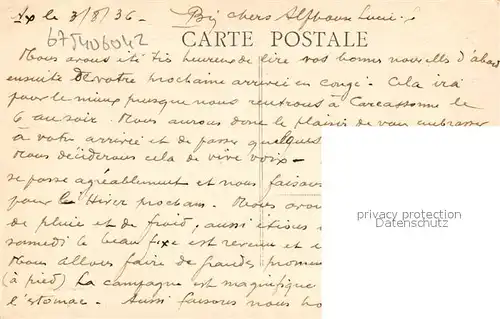 Ax le 3/8/36 - Bien chers Alphonse Lucie
675406042
CARTE POSTALE
Nous avons été très heureux de lire vos bonnes nouvelles d'abord
ensuite de votre prochaine arrivée en congé. Cela ira
pour le mieux puisque nous rentrons à Carcassonne le
6 au soir. Nous aurons donc le plaisir de vous embrasser
à votre arrivée et de passer quelques
Nous déciderons cela de vive voix -
se passe agréablement et nous faisons
pour l'Hiver prochain. Nous avons
de pluie et de froid, aussi
samedi le beau fixe est revenu et
Nous allons faire de grandes
(à pied) La campagne est magnifique
l'estomac. Aussi faisons nous
privacy protection
Datenschutz